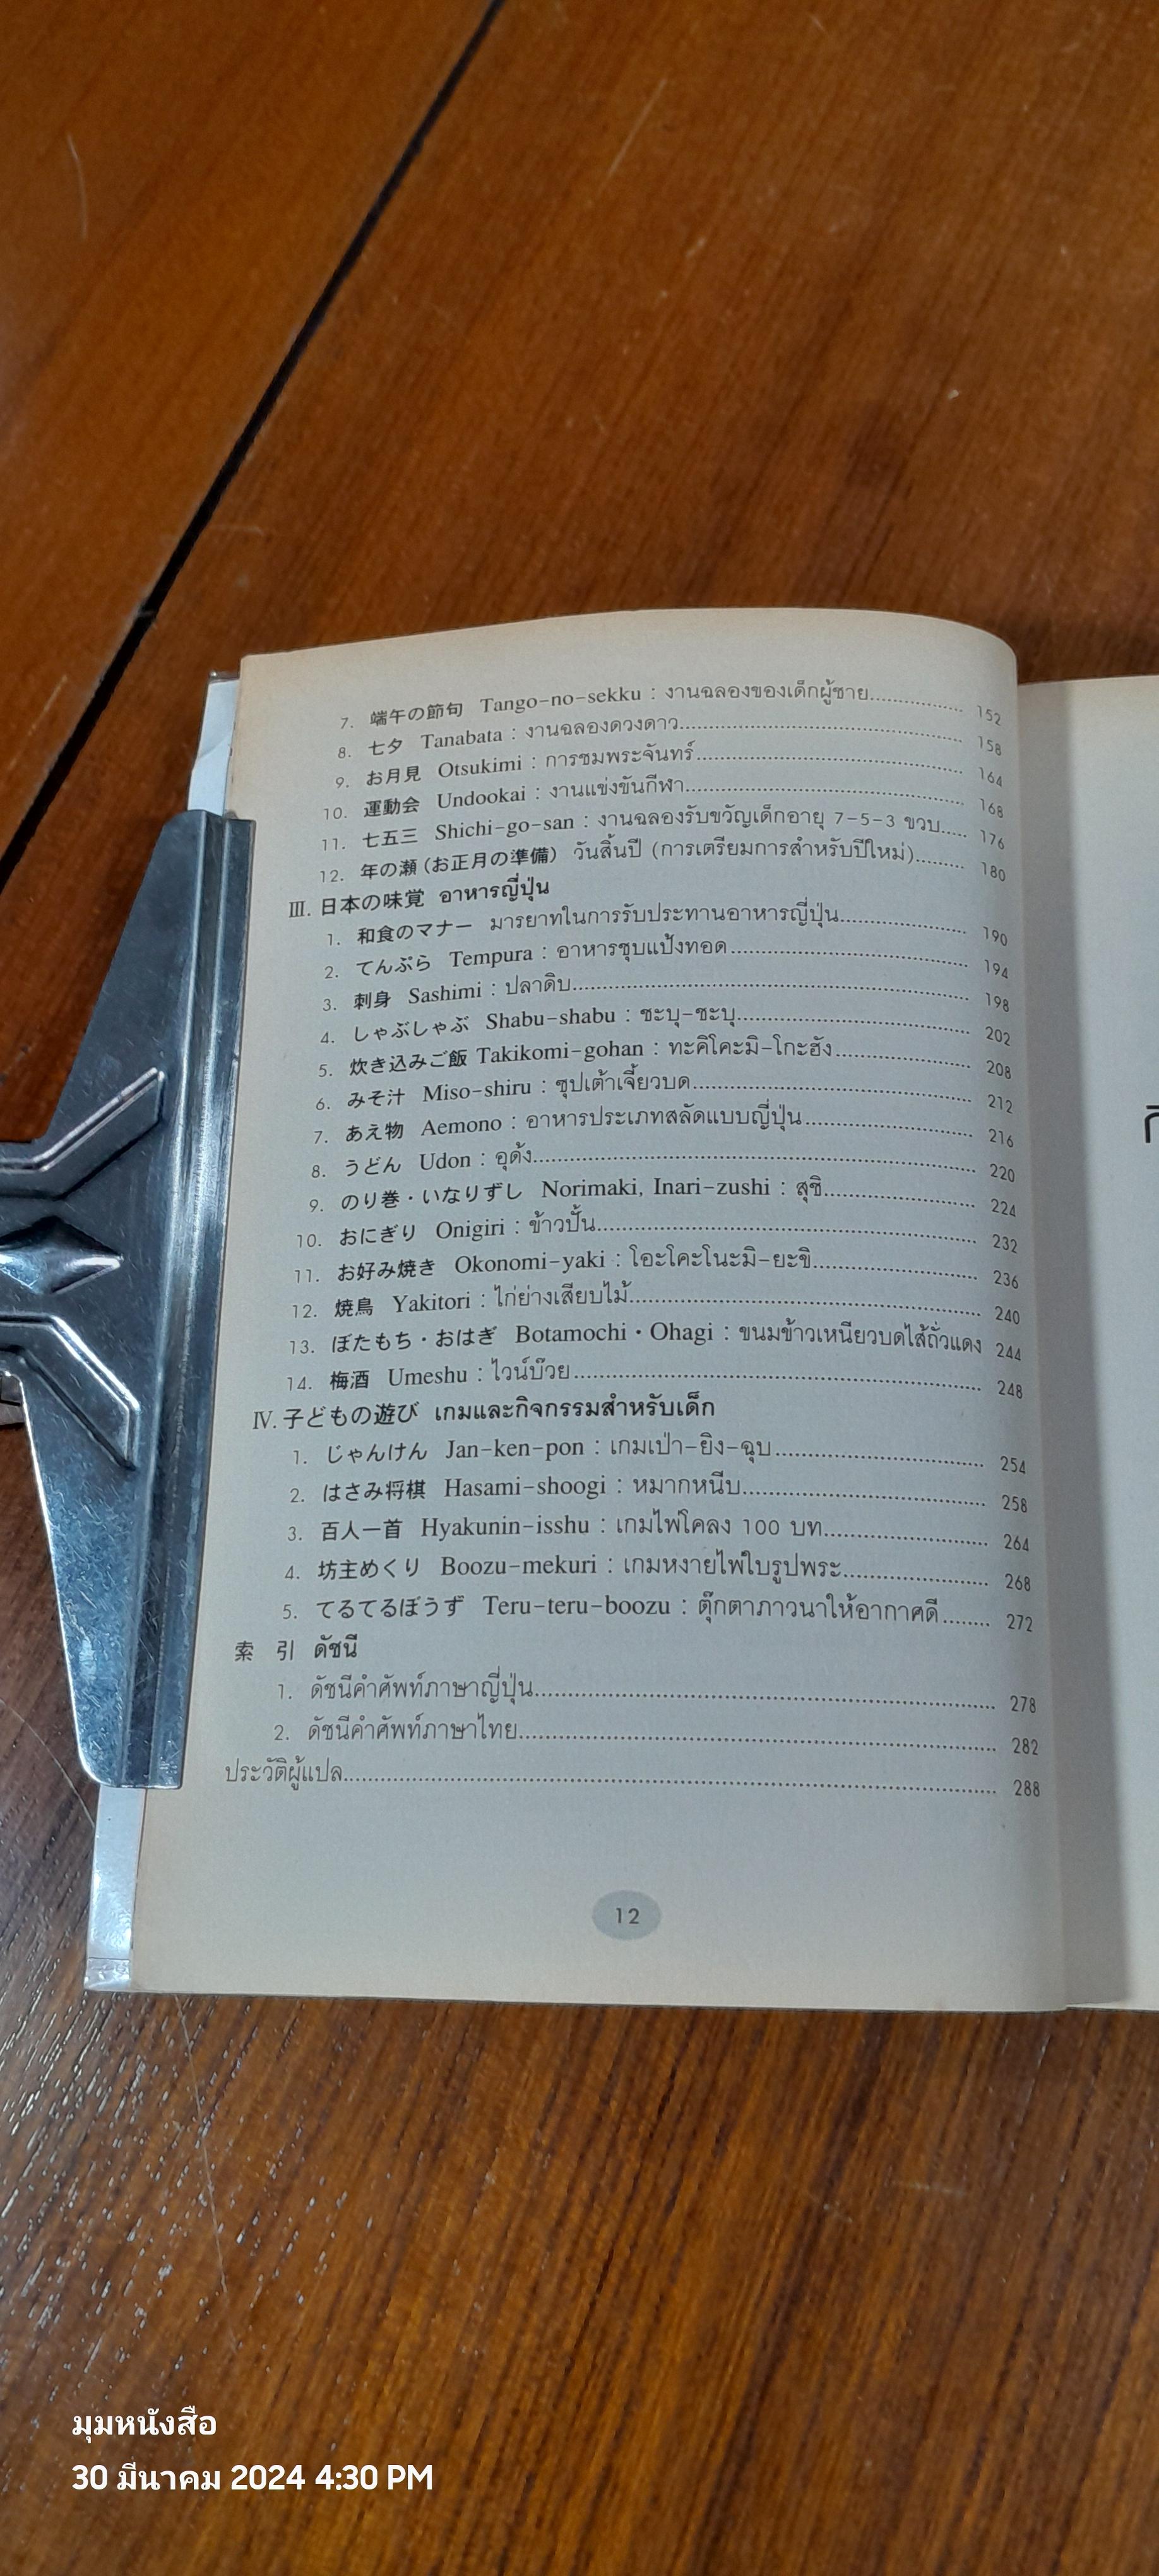 7. 端午の節句 Tango-no-sekku : งานฉลองของเด็กผู้ชาย.................... 152
8. 七夕 Tanabata : งานฉลองดวงดาว.................... 158
9. お月見 Otsukimi : การชมพระจันทร์.................... 164
10. 運動会 Undookai : งานแข่งขันกีฬา.................... 168
11. 七五三 Shichi-go-san : งานฉลองรับขวัญเด็กอายุ 7-5-3 ขวบ..... 176
12. 年の瀬 (お正月の準備) วันสิ้นปี (การเตรียมการสำหรับปีใหม่)......... 180
Ⅲ. 日本の味覚 อาหารญี่ปุ่น
1. 和食のマナー มารยาทในการรับประทานอาหารญี่ปุ่น.................... 190
2. てんぷら Tempura : อาหารชุบแป้งทอด.................... 194
3. 刺身 Sashimi : ปลาดิบ.................... 198
4. しゃぶしゃぶ Shabu-shabu : ชะบุ-ชะบุ.................... 202
5. 炊き込みご飯 Takikomi-gohan : ทะคิโคะมิ-โกะฮัง.................... 208
6. みそ汁 Miso-shiru : ซุปเต้าเจี้ยวบด.................... 212
7. あえ物 Aemono : อาหารประเภทสลัดแบบญี่ปุ่น.................... 216
8. うどん Udon : อุด้ง.................... 220
9. のり巻・いなりずし Norimaki, Inari-zushi : สุชิ.................... 224
10. おにぎり Onigiri : ข้าวปั้น.................... 232
11. お好み焼き Okonomi-yaki : โอะโคะโนะมิ-ยะขิ.................... 236
12. 焼鳥 Yakitori : ไก่ย่างเสียบไม้.................... 240
13. ぼたもち・おはぎ Botamochi・Ohagi : ขนมข้าวเหนียวบดไส้ถั่วแดง 244
14. 梅酒 Umeshu : ไวน์บ๊วย.................... 248
Ⅳ. 子どもの遊び เกมและกิจกรรมสำหรับเด็ก
1. じゃんけん Jan-ken-pon : เกมเป่า-ยิง-ฉุบ.................... 254
2. はさみ将棋 Hasami-shoogi : หมากหนีบ.................... 258
3. 百人一首 Hyakunin-isshu : เกมไพ่โคลง 100 บท.................... 264
4. 坊主めくり Boozu-mekuri : เกมหงายไพ่ใบรูปพระ.................... 268
5. てるてるぼうず Teru-teru-boozu : ตุ๊กตาภาวนาให้อากาศดี........ 272
索 引 ดัชนี
1. ดัชนีคำศัพท์ภาษาญี่ปุ่น.................... 278
2. ดัชนีคำศัพท์ภาษาไทย.................... 282
ประวัติผู้แปล.................... 288
12
มุมหนังสือ
30 มีนาคม 2024 4:30 PM